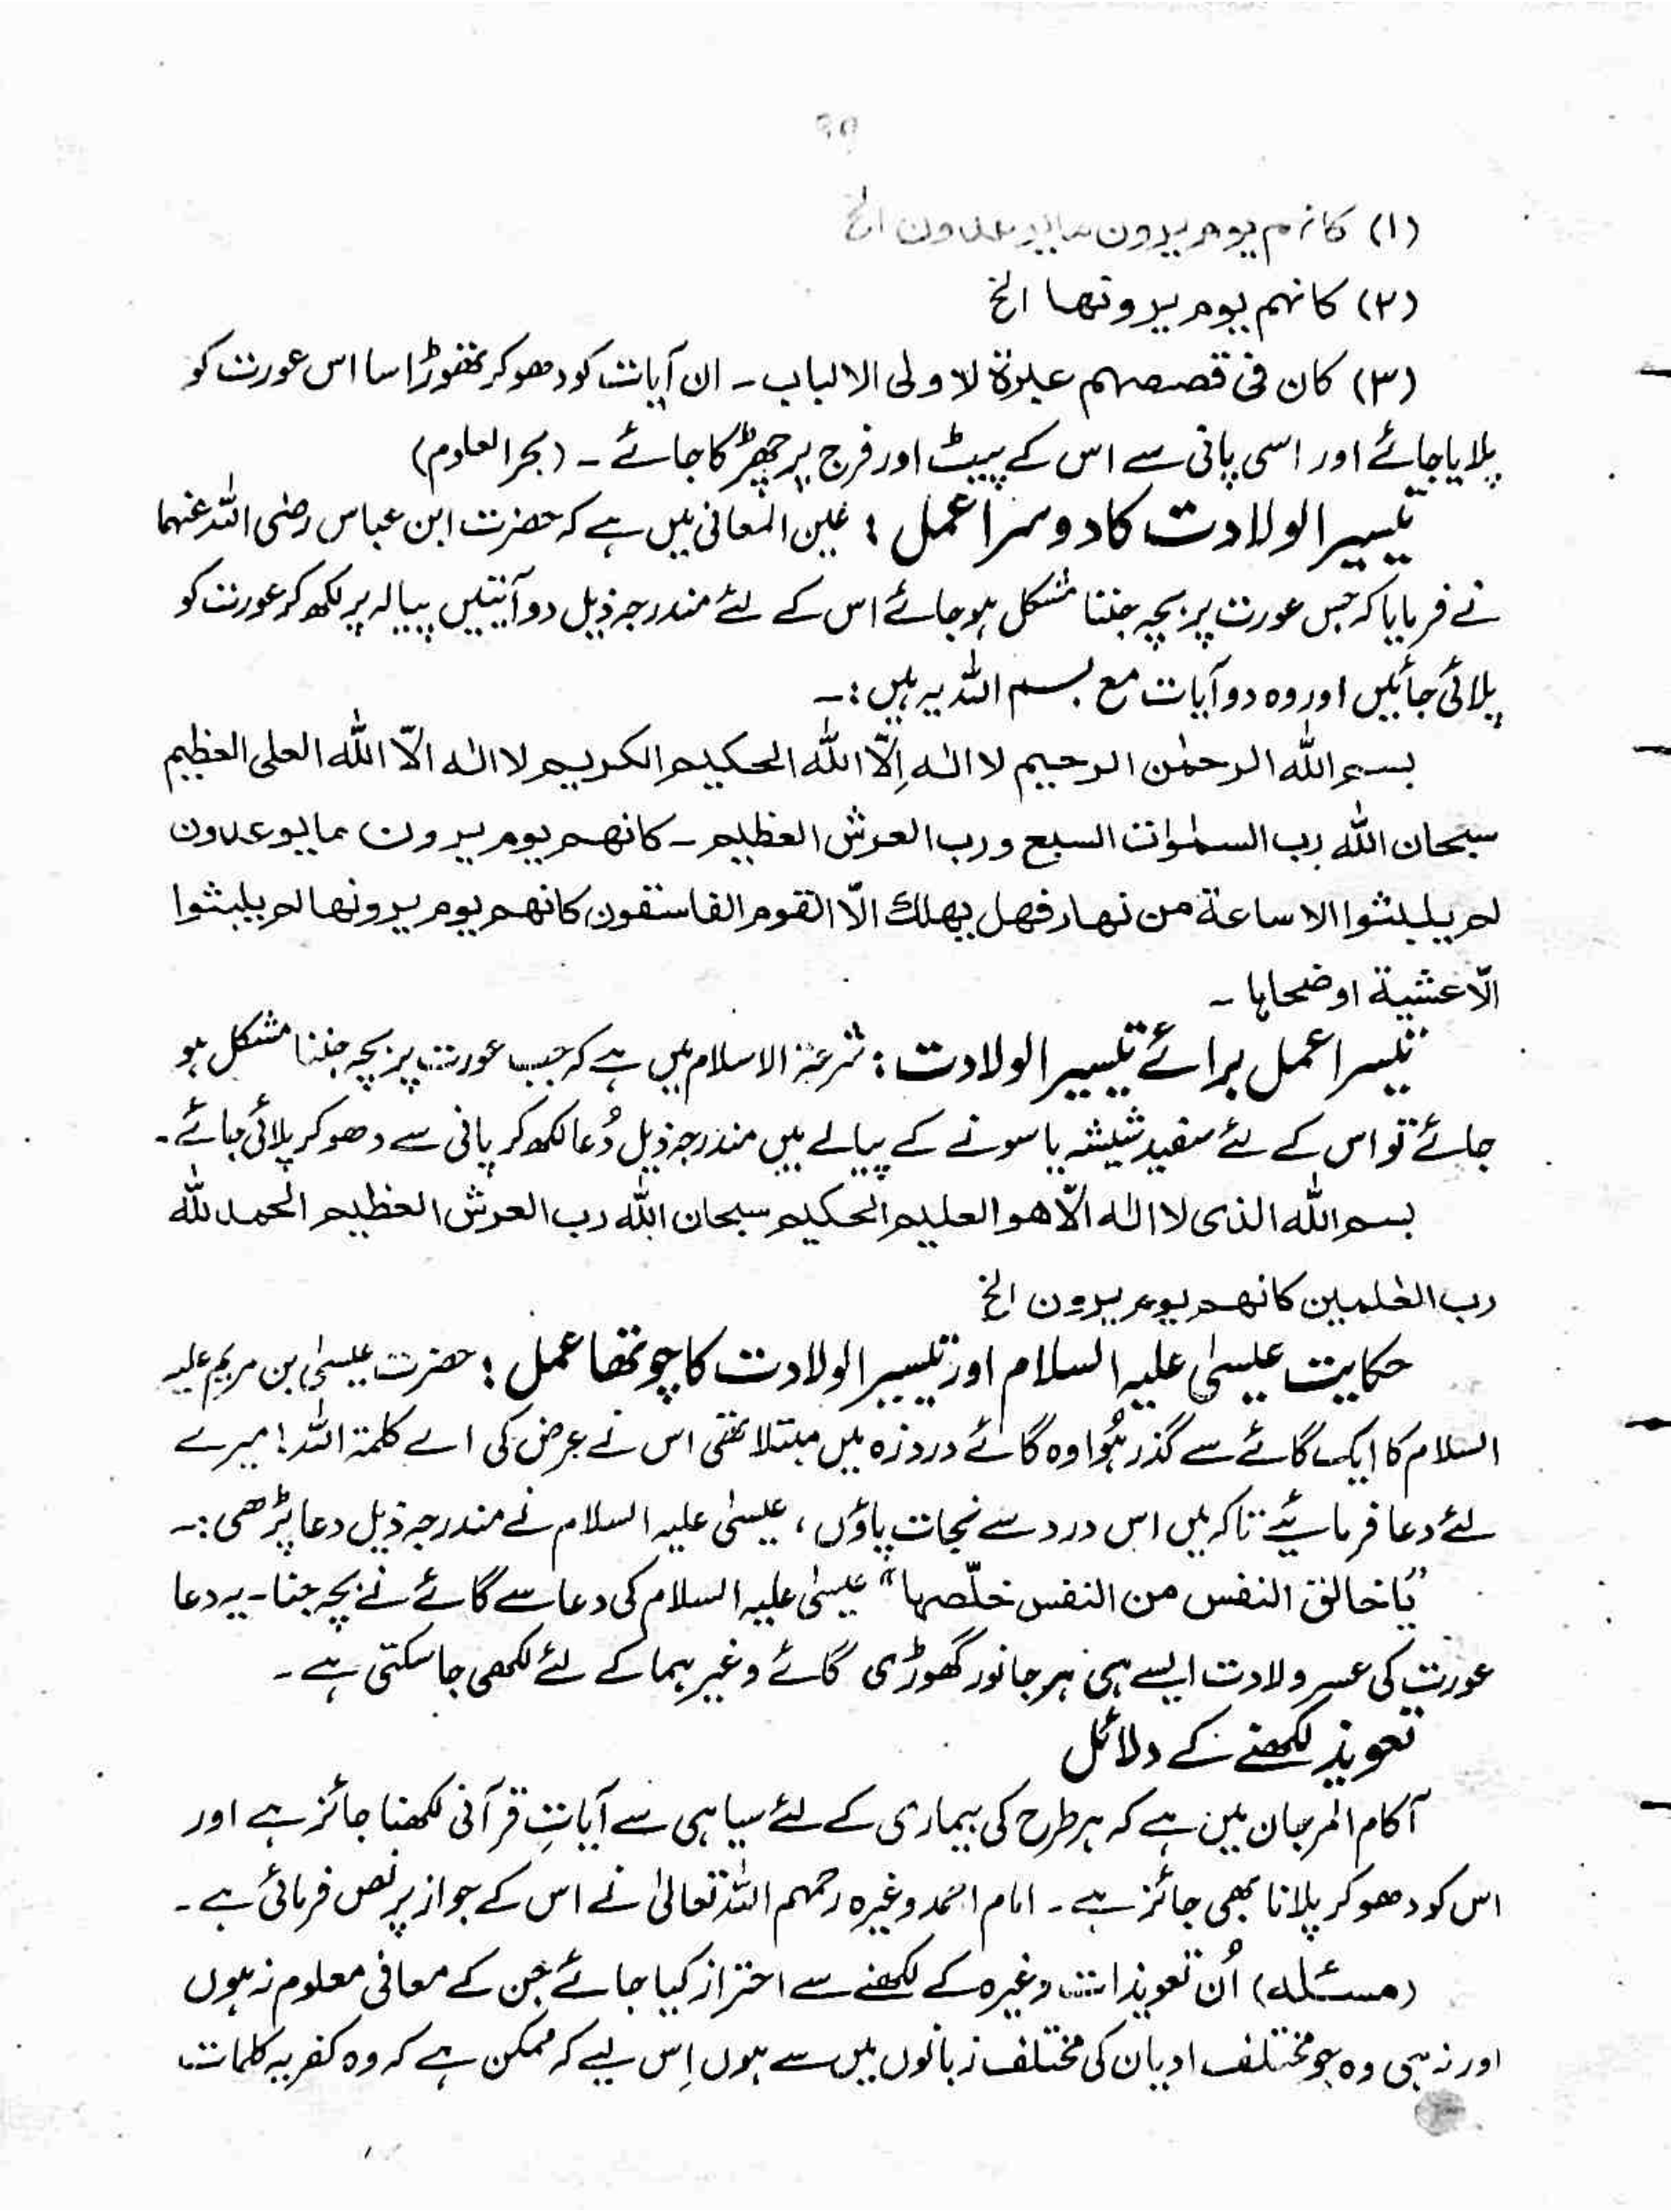 (۱) کانہم یوم یرون ما یوعدون الخ
(۲) کانہم یوم یرونھا الخ
(۳) کان فی قصصہم عبرۃ لاولی الالباب ۔ ان آیات کو دھوکر تھوڑا سا اس عورت کو
پلایا جائے اور اسی پانی سے اس کے پیٹ اور فرج پر چھڑکا جائے ۔ (بحرالعلوم)
تیسیر الولادت کا دوسرا عمل : عین المعانی میں ہے کہ حضرت ابن عباس رضی اللہ عنہما
نے فرمایا کہ جس عورت پر بچہ جننا مشکل ہو جائے اس کے لئے مندرجہ ذیل دو آیتیں پیالہ پر لکھ کر عورت کو
پلائی جائیں اور وہ دو آیات مع بسم اللہ یہ ہیں :۔
بسم اللہ الرحمٰن الرحیم لا الٰہ اِلّا اللہ الحکیم الکریم لا الٰہ الّا اللہ العلی العظیم
سبحان اللہ رب السمٰوات السبع ورب العرش العظیم ۔ کانھم یوم یرون ما یوعدون
لم یلبثوا الا ساعۃ من نھار فھل یھلک الّا القوم الفاسقون کانھم یوم یرونھا لم یلبثوا
الّا عشیۃ او ضحاہا ۔
تیسرا عمل برائے تیسیر الولادت : شرعۃ الاسلام میں ہے کہ جب عورت پر بچہ جننا مشکل ہو
جائے تو اس کے لئے سفید شیشہ یا سونے کے پیالے میں مندرجہ ذیل دُعا لکھ کر پانی سے دھوکر پلائی جائے ۔
بسم اللہ الذی لا الٰہ الّا ھو العلیم الحکیم سبحان اللہ رب العرش العظیم الحمد للہ
رب العٰلمین کانھم یوم یرون الخ
حکایت عیسیٰ علیہ السلام اور تیسیر الولادت کا چوتھا عمل : حضرت عیسیٰ بن مریم علیہ
السلام کا ایک گائے سے گذر ہُوا وہ گائے دردزہ میں مبتلا تھی اس نے عرض کی اے کلمۃ اللہ ! میرے
لئے دعا فرمائیے تاکہ میں اس درد سے نجات پاؤں ، عیسیٰ علیہ السلام نے مندرجہ ذیل دعا پڑھی :۔
"یا خالق النفس من النفس خلّصہا" عیسیٰ علیہ السلام کی دعا سے گائے نے بچہ جنا ۔ یہ دعا
عورت کی عسر ولادت ایسے ہی ہر جانور گھوڑی گائے وغیرہما کے لئے لکھی جا سکتی ہے ۔
تعویذ لکھنے کے دلائل
آکام المرجان میں ہے کہ ہر طرح کی بیماری کے لئے سیاہی سے آیاتِ قرآنی لکھنا جائز ہے اور
اس کو دھوکر پلانا بھی جائز ہے ۔ امام احمد وغیرہ رحمہم اللہ تعالیٰ نے اس کے جواز پر نص فرمائی ہے ۔
(مسئلہ) اُن تعویذات وغیرہ کے لکھنے سے احتراز کیا جائے جن کے معانی معلوم نہ ہوں
اور نہ ہی وہ جو مختلف ادیان کی مختلف زبانوں میں سے ہوں اِس لیے کہ ممکن ہے کہ وہ کفریہ کلمات